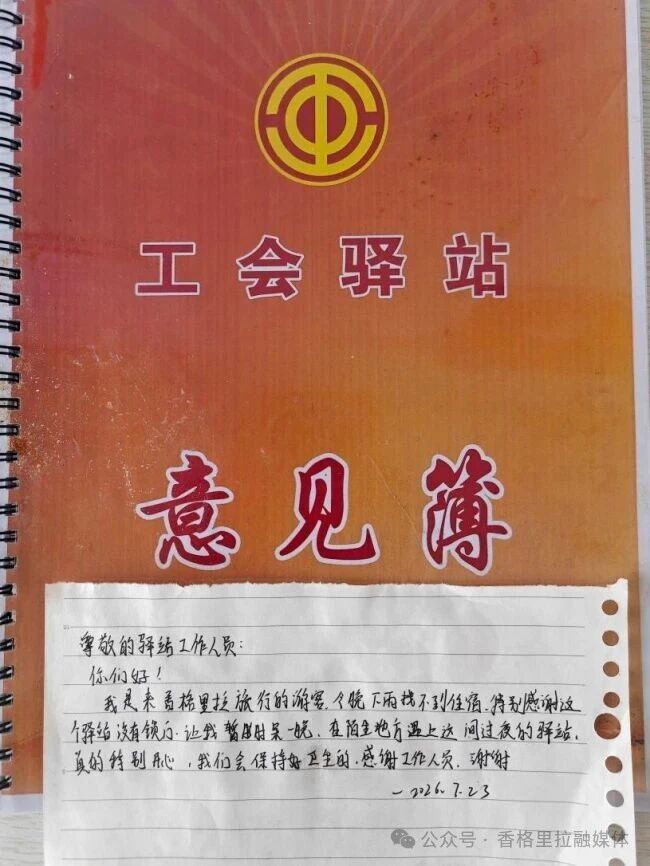 工会驿站
意见簿
尊敬的驿站工作人员:
你们好!
我是来香格里拉旅行的游客,今晚下雨找不到住宿,特别感谢这
个驿站没有锁门,让我暂时呆一晚,在陌生地方遇上这间过夜的驿站,
真的特别开心,我们会保持好卫生的,感谢工作人员,谢谢
—2026.7.23
公众号·香格里拉融媒体